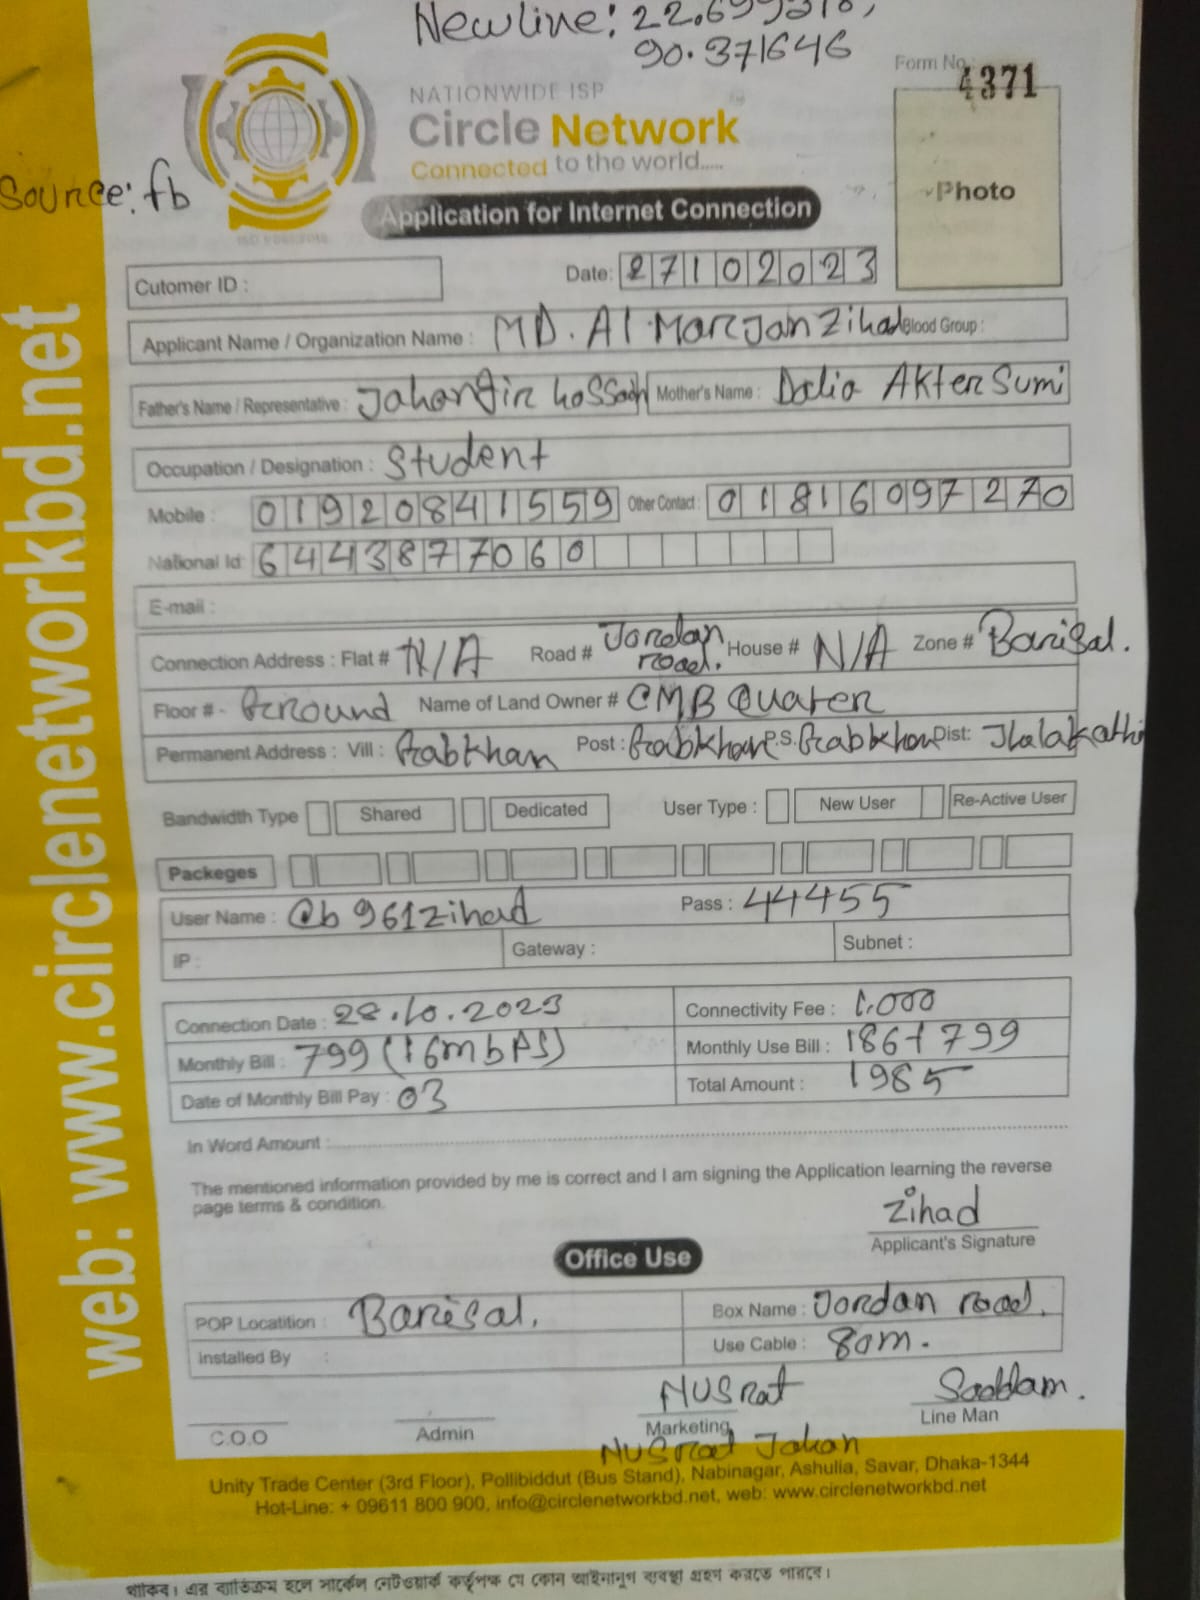 Newline:
90.371646
Form No.: 4371
NATIONWIDE ISP
Circle Network
Connected to the world.....
Source: fb
Photo
Application for Internet Connection
Cutomer ID : Date: 27102023
Applicant Name / Organization Name : MD. Al Marjan Zihad Blood Group :
Father's Name / Representative : Jahangir Mother's Name : Dalia Akter Sumi
Occupation / Designation : Student
Mobile : 01920841559 Other Contact : 01816097270
National Id: 6443877060
E-mail :
Connection Address : Flat # N/A Road # Jordan road. House # N/A Zone # Barisal.
Floor # - Ground Name of Land Owner # CMB Quater
Permanent Address : Vill : Gabkhan Post : Gabkhan P.S. Gabkhan Dist: Jhalakathi
Bandwidth Type Shared Dedicated User Type : New User Re-Active User
Packeges
User Name : @b961zihad Pass : 44455
IP : Gateway : Subnet :
Connection Date : 28.10.2023 Connectivity Fee : 1,000
Monthly Bill : 799 (16mbps) Monthly Use Bill : 186+799
Date of Monthly Bill Pay : 03 Total Amount : 1985
In Word Amount :
The mentioned information provided by me is correct and I am signing the Application learning the reverse
page terms & condition.
Zihad
Applicant's Signature
Office Use
POP Locatition : Barisal. Box Name : Jordan road.
Installed By : Use Cable : 80m.
Nusrat Saddam.
C.O.O Admin Marketing Line Man
Nusrat Jahan
Unity Trade Center (3rd Floor), Pollibiddut (Bus Stand), Nabinagar, Ashulia, Savar, Dhaka-1344
Hot-Line: + 09611 800 900, info@circlenetworkbd.net, web: www.circlenetworkbd.net
থাকিব। এর ব্যতিক্রম হলে সার্কেল নেটওয়ার্ক কর্তৃপক্ষ যে কোন আইনানুগ ব্যবস্থা গ্রহণ করতে পারবে।
web: www.circlenetworkbd.net